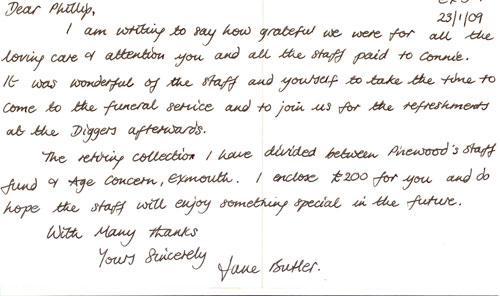 Dear Phillip,
23/1/09
I am writing to say how grateful we were for all the
loving care & attention you and all the staff paid to Connie.
It was wonderful of the staff and yourself to take the time to
come to the funeral service and to join us for the refreshments
at the Diggers afterwards.
The retiring collection I have divided between Pinewood's staff
fund & Age Concern, Exmouth. I enclose £200 for you and do
hope the staff will enjoy something special in the future.
With Many thanks
Yours Sincerely
Jane Butler.